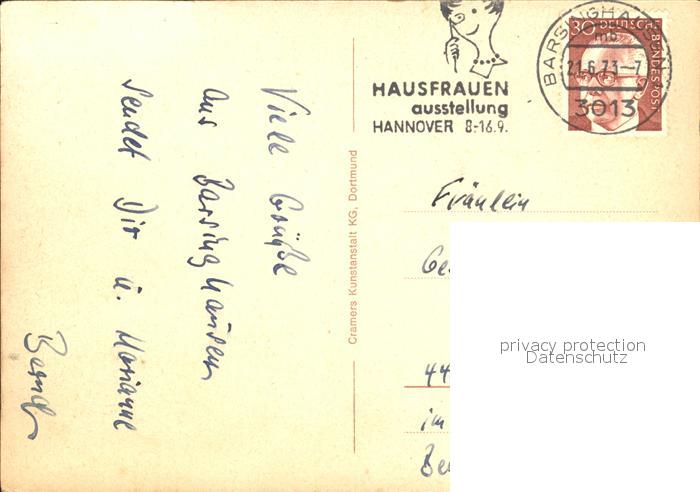 Viele Grüße
aus Barsinghausen
sendet Dir u. Marianne
Bernd
Cramers Kunstanstalt KG, Dortmund
HAUSFRAUEN
ausstellung
HANNOVER 8.-16.9.
BARSINGHAUSEN
mb
21.6.73--7
3013
30 DEUTSCHE BUNDESPOST
Fräulein
Ge
44
im
Be
privacy protection
Datenschutz